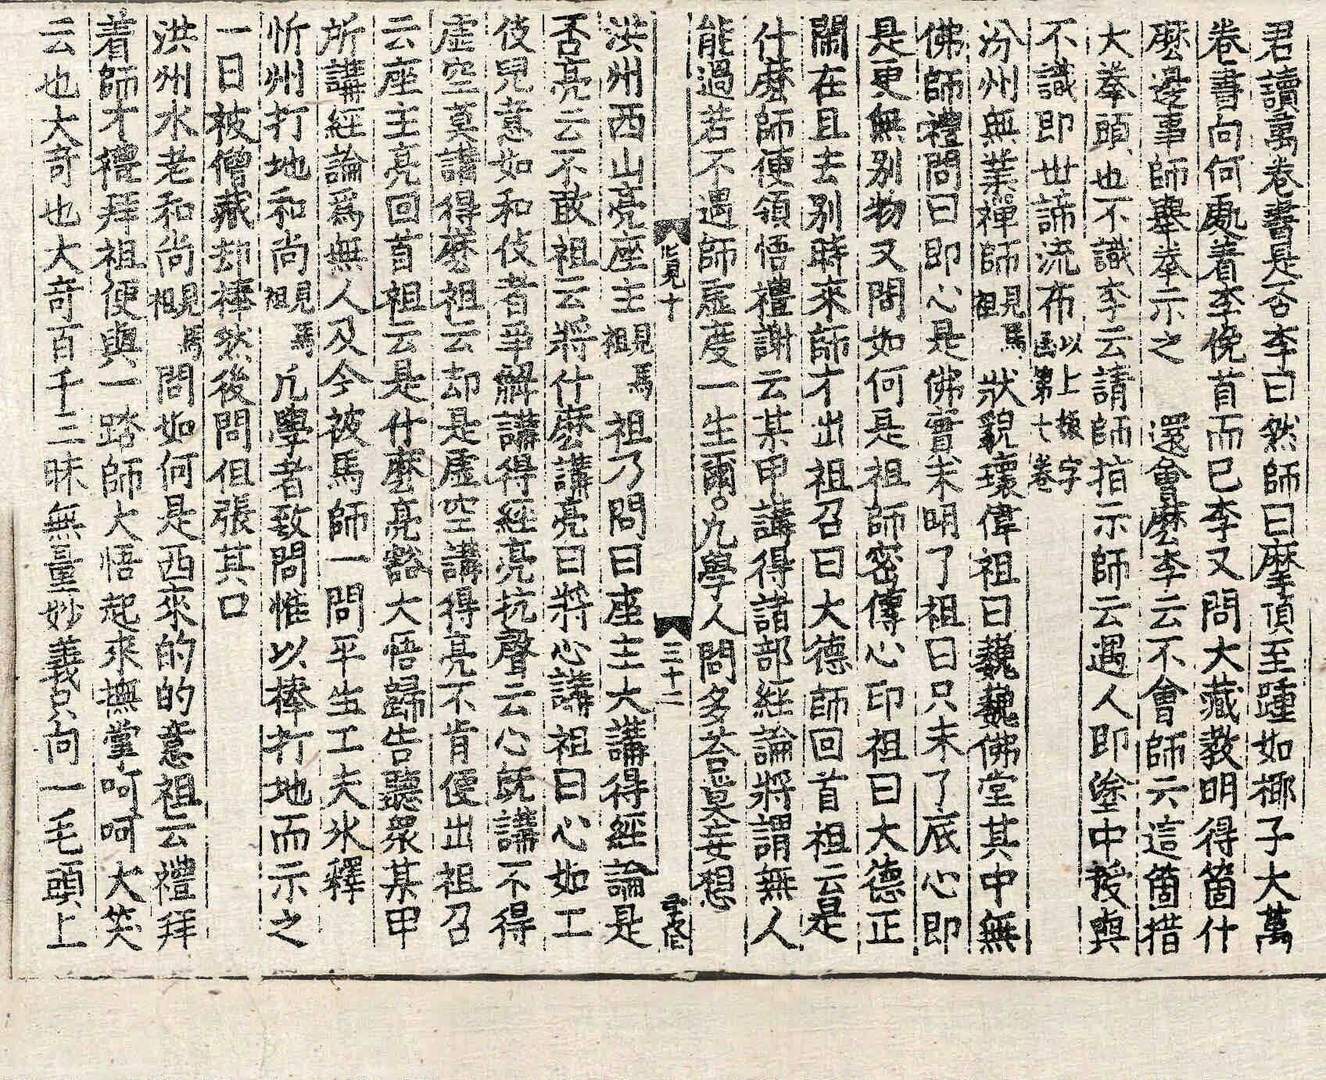 君讀萬卷書是否李曰然師曰摩頂至踵如椰子大萬
卷書向何處着李俛首而已李又問大藏教明得箇什
麽邊事師舉拳示之 還會麽李云不會師云這箇措
大拳頭也不識李云請師指示師云遇人即途中授與
不識即世諦流布以上振字函第七卷
汾州無業禪師見馬祖 狀貌瓌偉祖曰巍巍佛堂其中無
佛師禮問曰即心是佛實未明了祖曰只未了底心即
是更無別物又問如何是祖師密傳心印祖曰大德正
閙在且去別時來師才出祖召曰大德師回首祖云是
什麽師便領悟禮謝云某甲講得諸部經論將謂無人
能過若不遇師虛度一生爾。凡學人問多荅莫妄想
見十 三十二
洪州西山亮座主見馬祖 祖乃問曰座主大講得經論是
否亮云不敢祖云將什麽講亮曰將心講祖曰心如工
伎兒意如和伎者爭解講得經亮抗聲云心旣講不得
虛空莫講得麽祖云却是虛空講得亮不肯便出祖召
云座主亮回首祖云是什麽亮豁大悟歸告聽衆某甲
所講經論爲無人及今被馬師一問平生工夫氷釋
忻州打地和尚見馬祖 凡學者致問惟以棒打地而示之
一日被僧藏却棒然後問但張其口
洪州水老和尚見馬祖 問如何是西來的的意祖云禮拜
着師才禮拜祖便與一踏師大悟起來撫掌呵呵大笑
云也大奇也大奇百千三昧無量妙義只向一毛頭上